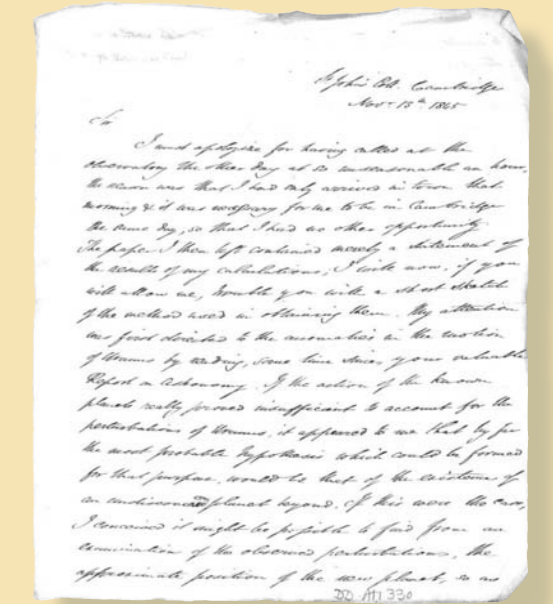 St John's Coll. Cambridge
Novr 13th 1845
Sir
I must apologize for having called at the
observatory the other day at so unseasonable an hour,
the reason was that I had only arrived in town that
morning & it was necessary for me to be in Cambridge
the same day, so that I had no other opportunity.
The paper I then left contained merely a statement of
the results of my calculations; I write now, if you
will allow me, trouble you with a short sketch
of the method used in obtaining them. My attention
was first directed to the anomalies in the motion
of Uranus by reading, some time since, your valuable
Report on Astronomy. If the action of the known
planets really proved insufficient to account for the
perturbations of Uranus, it appeared to me that by far
the most probable hypothesis which could be formed
for that purpose, would be that of the existence of
an undiscovered planet beyond. If this were the case,
I conceived it might be possible to find from an
examination of the observed perturbations, the
approximate position of the new planet, so as